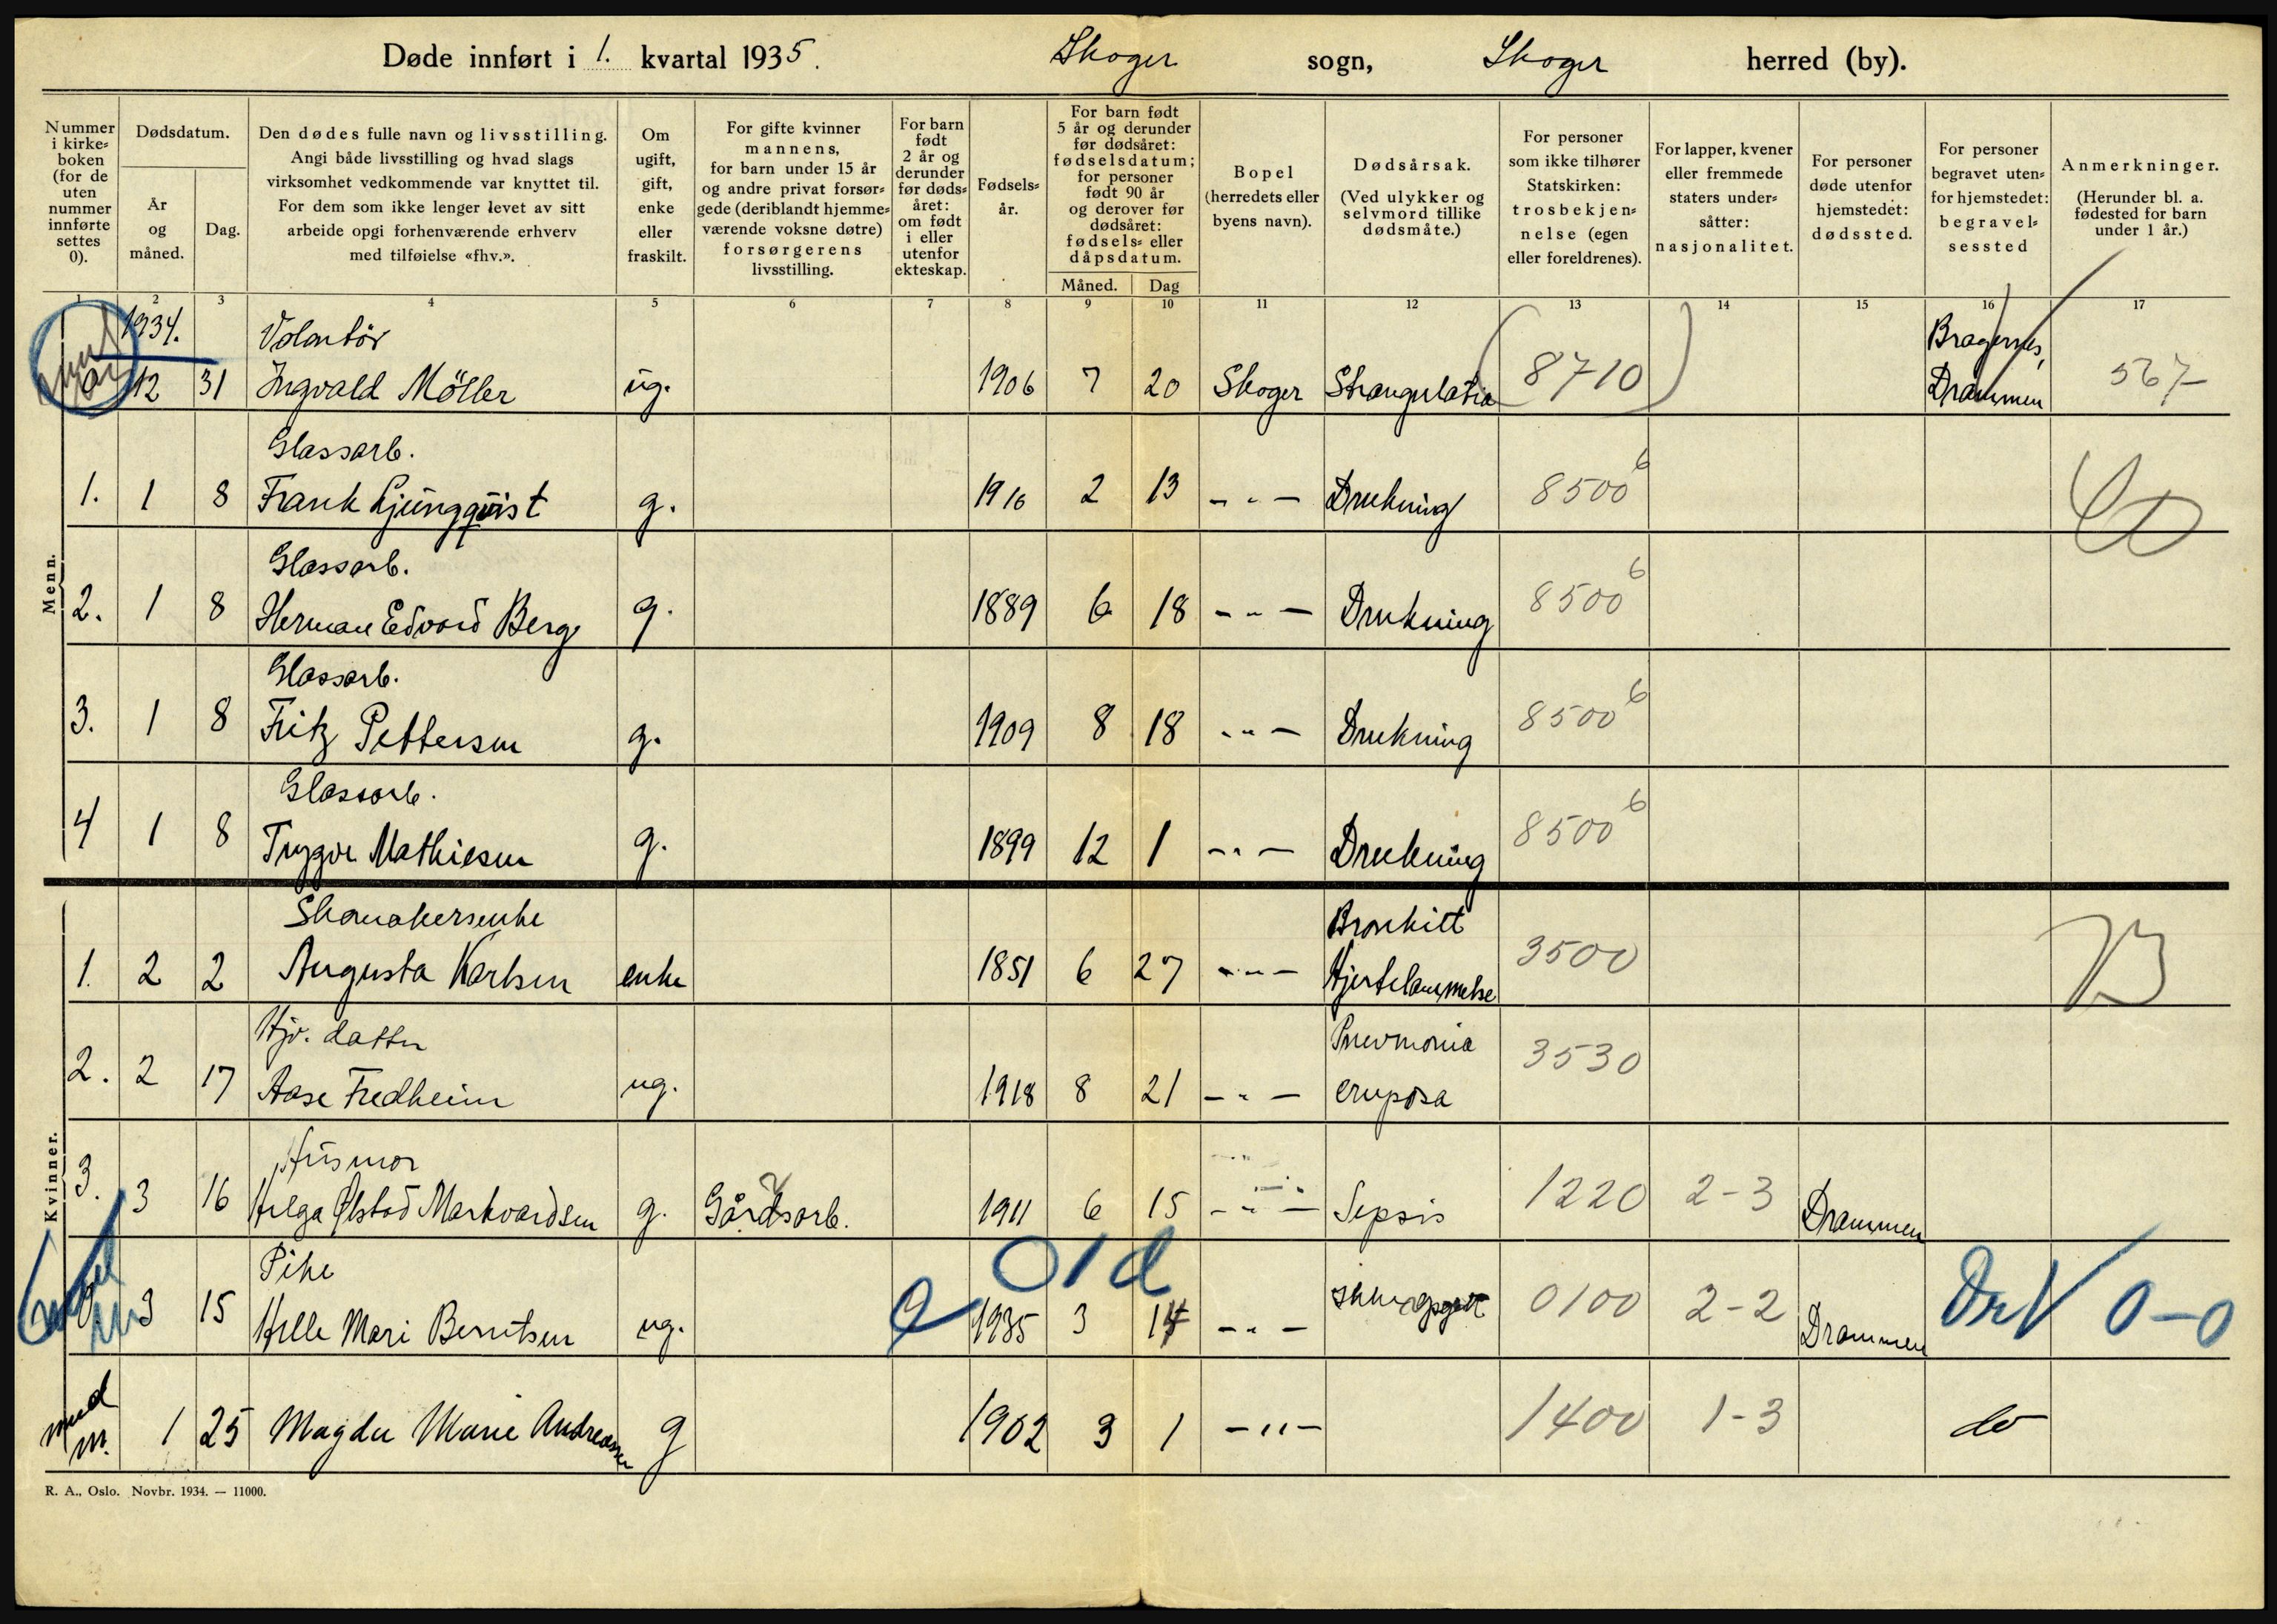 Døde innført i 1. kvartal 1935. Skoger sogn, Skoger herred (by).
Nummer i kirke-boken (for de uten nummer innførte settes 0).
Dødsdatum.
År og måned.
Dag.
Den dødes fulle navn og livsstilling.
Angi både livsstilling og hvad slags
virksomhet vedkommende var knyttet til.
For dem som ikke lenger levet av sitt
arbeide opgi forhenværende erhverv
med tilføielse «fhv.».
Om ugift, gift, enke eller fraskilt.
For gifte kvinner mannens, for barn under 15 år og andre privat forsør-gede (deriblandt hjemme-værende voksne døtre) forsørgerens livsstilling.
For barn født 2 år og derunder før døds-året: om født i eller utenfor ekteskap.
Fødsels-år.
For barn født 5 år og derunder før dødsåret: fødselsdatum; for personer født 90 år og derover før dødsåret: fødsels- eller dåpsdatum.
Måned. Dag
Bopel (herredets eller byens navn).
Dødsårsak. (Ved ulykker og selvmord tillike dødsmåte.)
For personer som ikke tilhører Statskirken: trosbekjen-nelse (egen eller foreldrenes).
For lapper, kvener eller fremmede staters under-såtter: nasjonalitet.
For personer døde utenfor hjemstedet: dødssted.
For personer begravet uten-for hjemstedet: begravel-sessted
Anmerkninger. (Herunder bl. a. fødested for barn under 1 år.)
1 2 3 4 5 6 7 8 9 10 11 12 13 14 15 16 17
Menn.
1934. Volontör Bragernes,
12 31 Ingvald Möller ug. 1906 7 20 Skoger Strangulatio (8710) Drammen 567-
Glassarb.
1. 1 8 Frank Ljungqvist g. 1916 2 13 - " - Drukning 8500 6
Glassarb.
2. 1 8 Herman Edvard Berg g. 1889 6 18 - " - Drukning 8500 6
Glassarb.
3. 1 8 Fritz Pettersen g. 1909 8 18 - " - Drukning 8500 6
Glassarb.
4 1 8 Trygve Mathiesen g. 1899 12 1 - " - Drukning 8500 6
Kvinner.
Skomakerenke Bronkitt
1. 2 2 Augusta Karlsen enke 1851 6 27 - " - Hjertelammelse 3500
Hjv. datter Pnevmonia
2. 2 17 Aase Fredheim ug. 1918 8 21 - " - cruposa 3530
Husmor
3. 3 16 Helga Ølstad Markvardsen g. Gårdsarb. 1911 6 15 - " - Sepsis 1220 2-3 Drammen
Pike 01d
3 15 Helle Mari Berntsen ug. 1935 3 14 - " - 0100 2-2 Drammen Dr V 0-0
med m. 1 25 Magda Marie Andreassen g 1902 3 1 - " - 1400 1-3 do
R. A., Oslo. Novbr. 1934. — 11000.